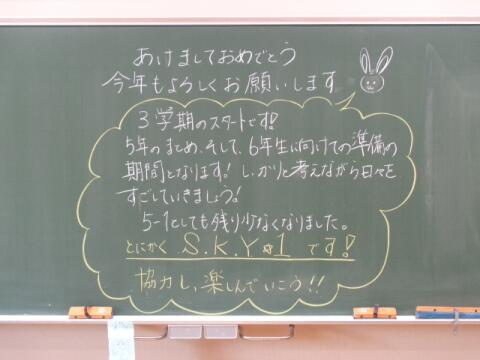 あけましておめでとう
今年もよろしくお願いします
3学期のスタートです!
5年のまとめ、そして、6年生に向けての準備の
期間となります! しっかりと考えながら日々を
すごしていきましょう!
5-1としても残り少なくなりました。
とにかく S.K.Y☆1 です!
協力し、楽しんでいこう!!